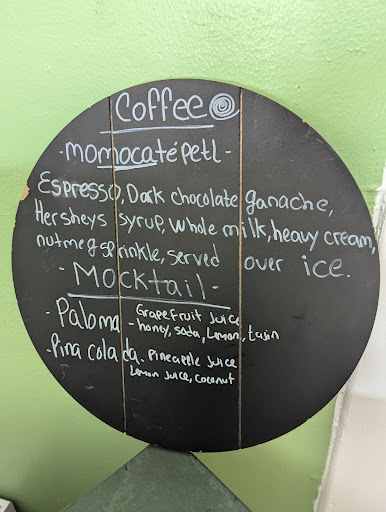 Coffee
-momocatépetl-
Espresso, Dark chocolate ganache,
Hersheys syrup, Whole milk, heavy cream,
nutmeg sprinkle, served over ice.
- Mocktail -
- Paloma - Grapefruit Juice
honey, soda, Lemon, tajin
- Pina colada. Pineapple Juice
Lemon Juice, coconut